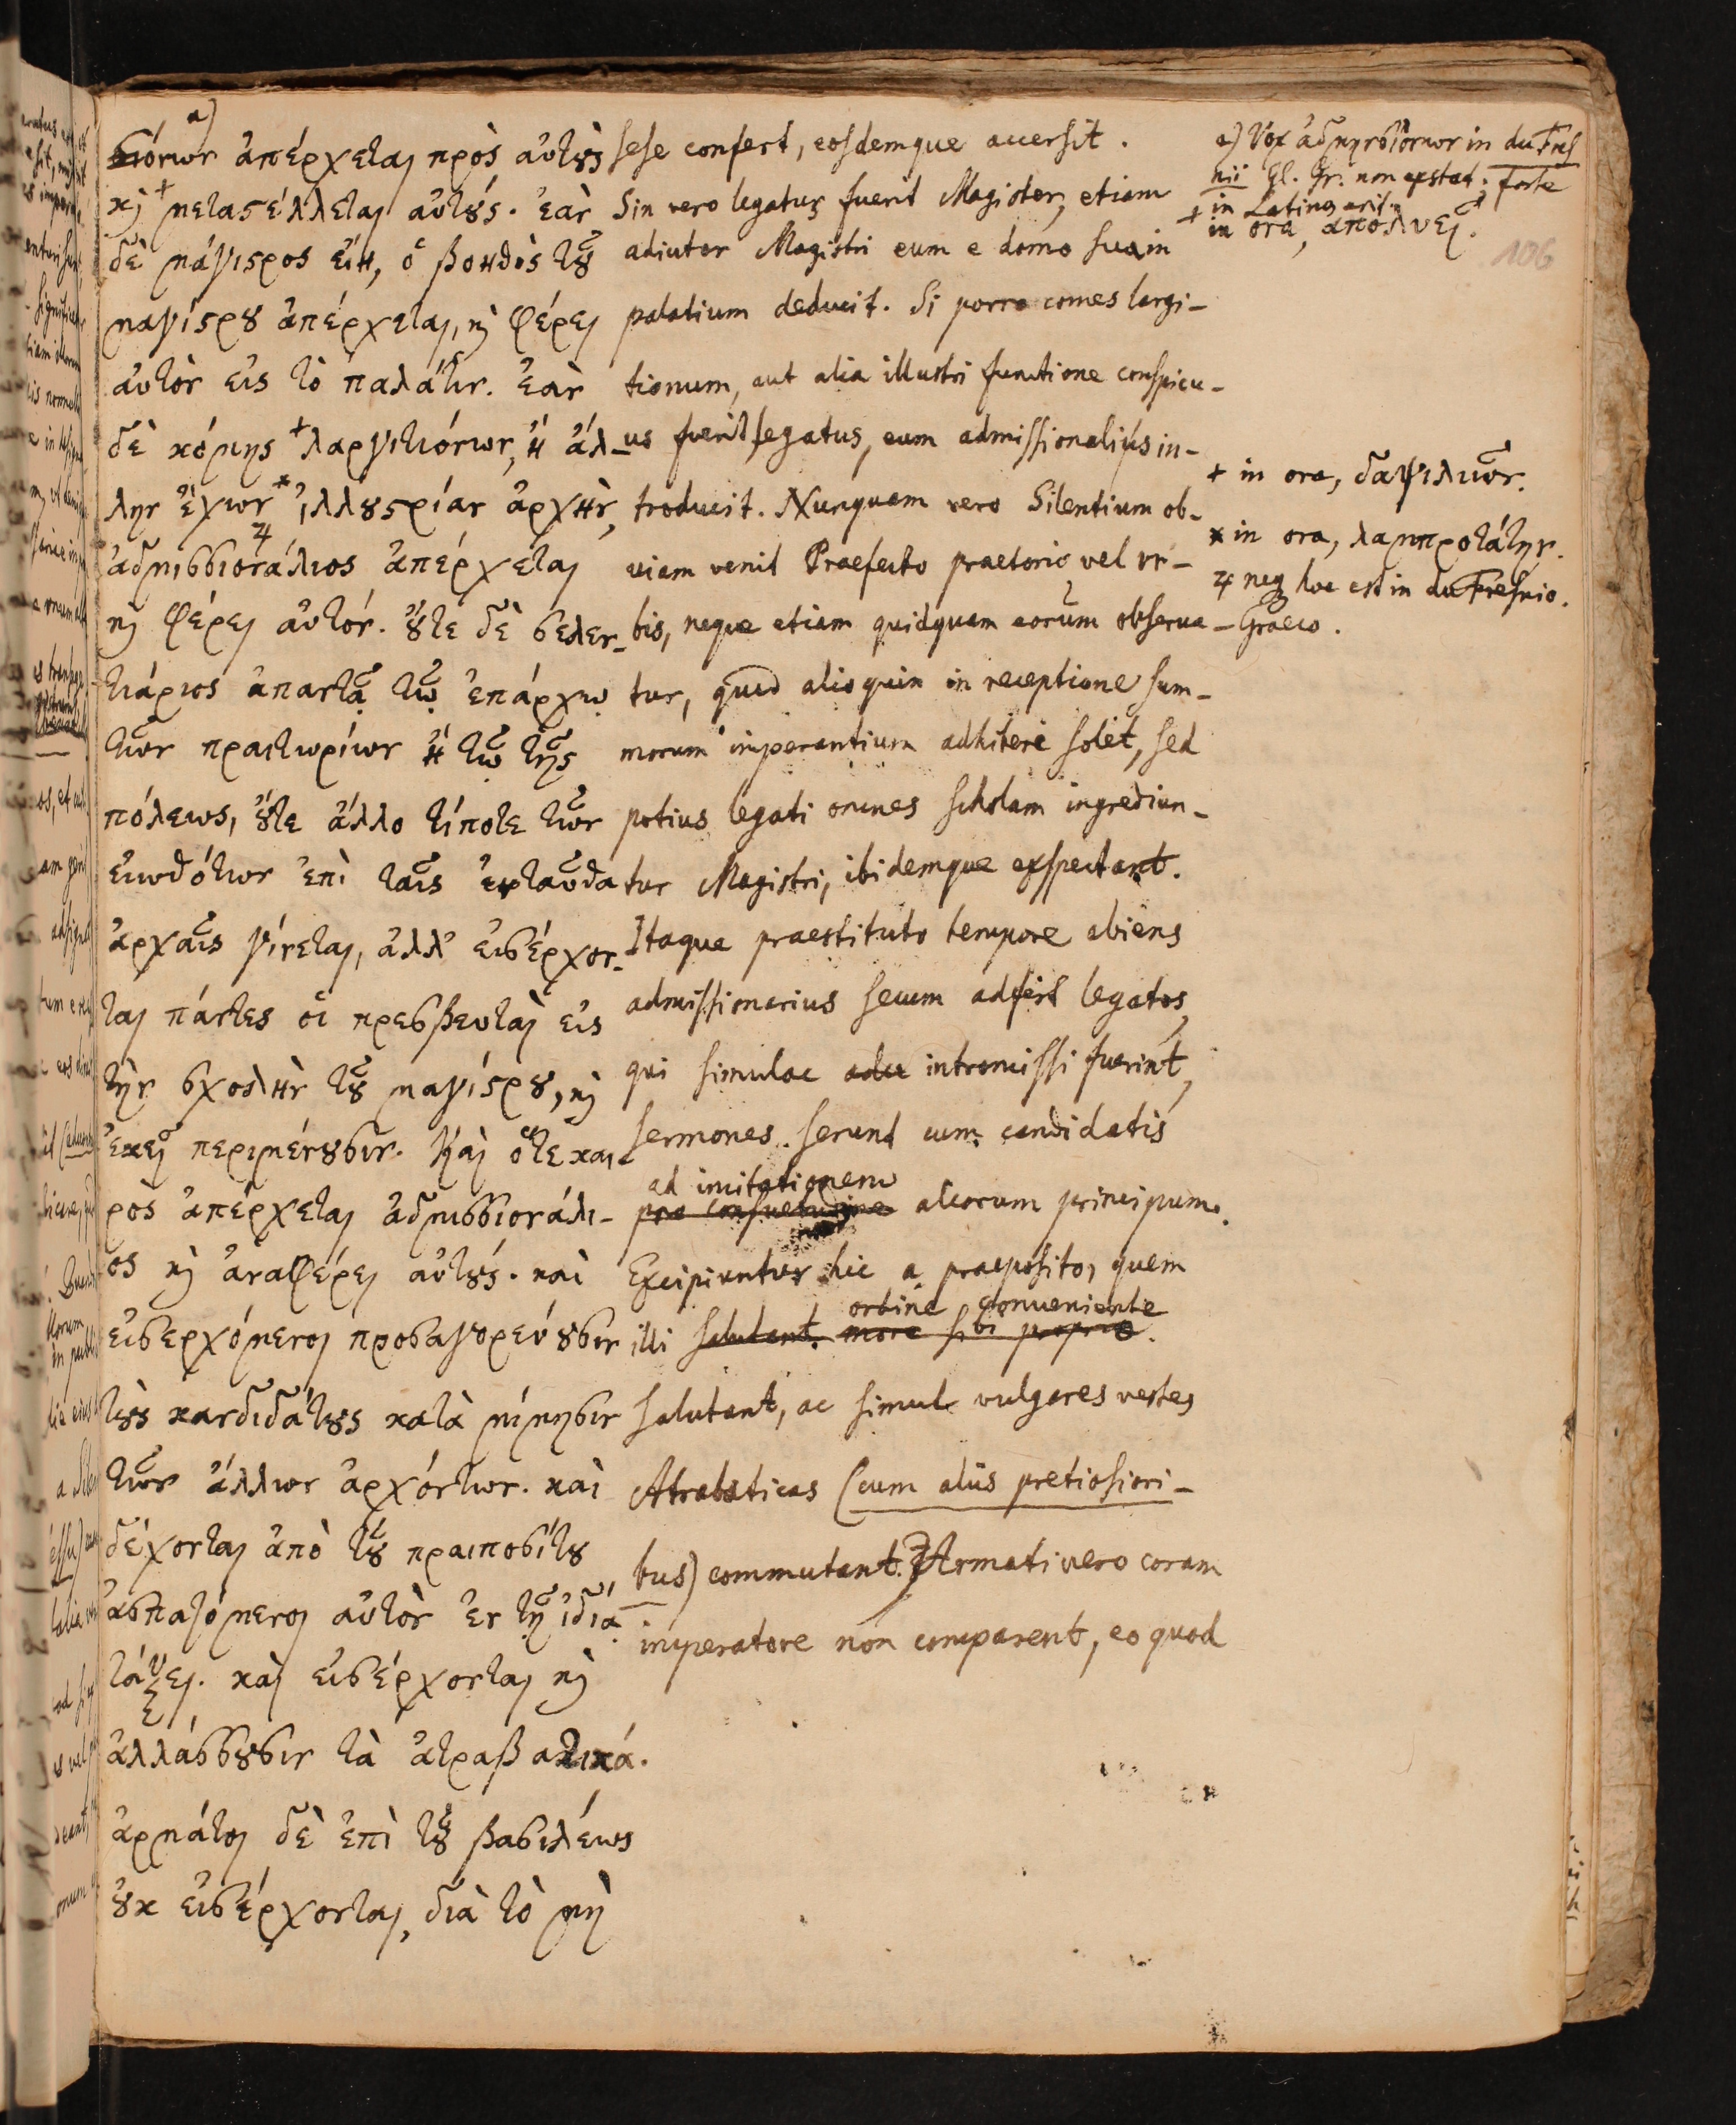 σιόνων ἀπέρχεται πρὸς αὐτοὺς
καὶ + μεταστέλλεται αὐτούς. ἐὰν
δὲ μάγιστρος εἴη, ὁ βοηθὸς τοῦ
μαγίστρου ἀπέρχεται, καὶ φέρει
αὐτὸν εἰς τὸ παλάτιν. ἐὰν
δὲ κόμης + λαργιτιόνων, ἢ ἄλ-
λην ἔχων * ἰλλουστρίαν ἀρχὴν,
ἀδμισσιονάλιος ἀπέρχεται
καὶ φέρει αὐτόν. οὔτε δὲ σελεν-
τιάριος ἀπαντᾷ τῷ ἐπάρχῳ
τῶν πραιτωρίων ἢ τῷ τῆς
πόλεως, οὔτε ἄλλο τίποτε τῶν
εἰωθότων ἐπὶ ταῖς ἐνταῦθα
ἀρχαῖς γίνεται, ἀλλ' εἰσέρχον-
ται πάντες οἱ πρεσβευταὶ εἰς
τὴν σχολὴν τοῦ μαγίστρου, καὶ
ἐκεῖ περιμένουσιν. Καὶ ὅτε και-
ρὸς ἀπέρχεται ἀδμισσιονάλι-
ος καὶ ἀναφέρει αὐτούς. καὶ
εἰσερχόμενοι προσαγορεύουσιν
τοὺς κανδιδάτους κατὰ μίμησιν
τῶν ἄλλων ἀρχόντων. καὶ
δέχονται ἀπὸ τοῦ πραιποσίτου
ἀσπαζόμενοι αὐτὸν ἐν τῇ ἰδίᾳ
τάξει. καὶ εἰσέρχονται καὶ
ἀλλάσσουσιν τὰ ἀτραβατικά.
ἀρμάτοι δὲ ἐπὶ τοῦ βασιλέως
οὐκ εἰσέρχονται, διὰ τὸ μὴ
sese confert, eosdemque accersit.
Sin vero legatus fuerit Magister, etiam
adiutor Magistri eum e domo sua in
palatium deducit. Si porro comes largi-
tionum, aut alia illustri functione conspicu-
us fuerit legatus, eum admissionalius in-
troducit. Nunquam vero Silentium ob-
viam venit Praefecto praetorio vel ur-
bis, neque etiam quidquam eorum observa-
tur, quod alioquin in receptione sum-
morum imperantium adhiberi solet, sed
potius legati omnes scholam ingrediun-
tur Magistri, ibidemque exspectant.
Itaque praestituto tempore abiens
admissionarius secum adfert legatos,
qui simulac adu intromissi fuerint,
sermones serunt cum candidatis
ad imitationem
pro consuetudine aliorum principum.
Excipiuntur hic a praeposito, quem
ordine conveniente
illi salutant. more sibi proprio.
salutant, ac simul vulgares vestes
Atrabaticas (cum aliis pretiosiori-
bus) commutant. Armati vero coram
imperatore non comparent, eo quod
a) Vox ἀδμηνσιόνων in du Fres
nii Gl. Gr. non exstat; forte
in Latino erit.
+ in ora, ἀπολύει.
106
+ in ora, δαψιλιῶν.
* in ora, λαμπροτάτην.
♃ neq hoc est in du Fresnio.
Graeco.